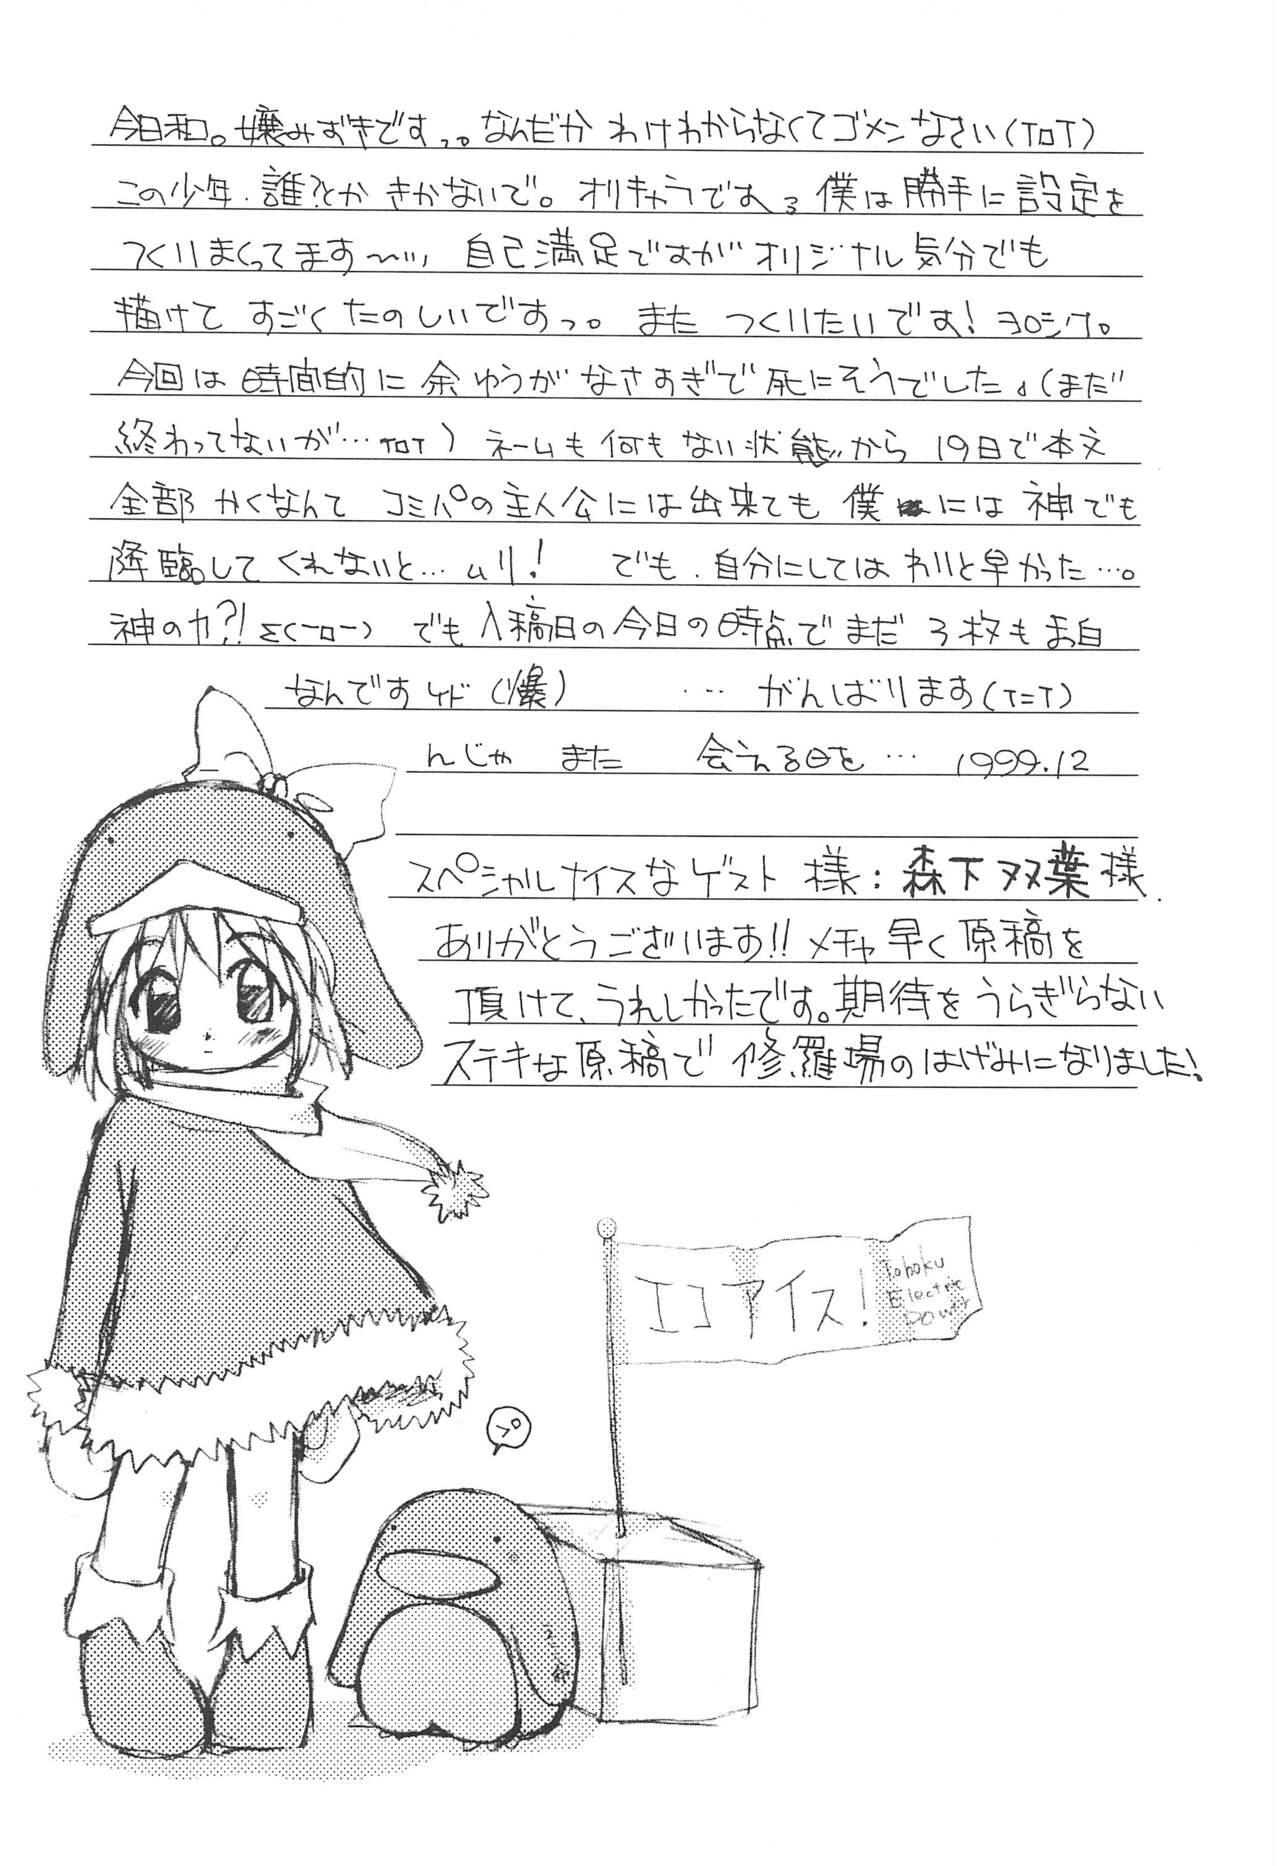 今日和。嬢みずきですっ。なんだか わけわからなくてゴメンなさい(ToT)
この少年.誰?とか きかないで。オリキャラです。僕は勝手に設定を
つくりまくってます〜ッ, 自己満足ですがオリジナル気分でも
描けて すごくたのしいですっ。また つくりたいです!ヨロシク。
今回は時間的に余ゆうがなさすぎで死にそうでした。(まだ
終わってないが…ToT) ネームも何もない状態から 19日で本文
全部 かくなんて コミパの主人公には出来ても 僕には 神でも
降臨してくれないと…ムリ! でも.自分にしては わりと早かった…。
神の力?! Σ(ーロー) でも入稿日の今日の時点でまだ 3枚もま白
なんですけど(爆) …がんばります(T=T)
んじゃ また 会える日を… 1999.12
スペシャルナイスなゲスト様:森下双葉様.
ありがとうございます!!メチャ早く原稿を
頂けて、うれしかったです。期待をうらぎらない
ステキな原稿で 修羅場のはげみになりました!
エコアイス!
Tohoku
Electric
Power